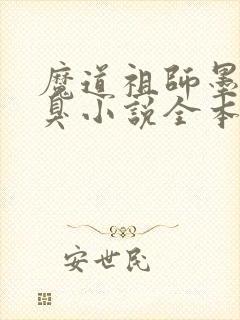 魔道祖師墨
臭小説全本
安世民